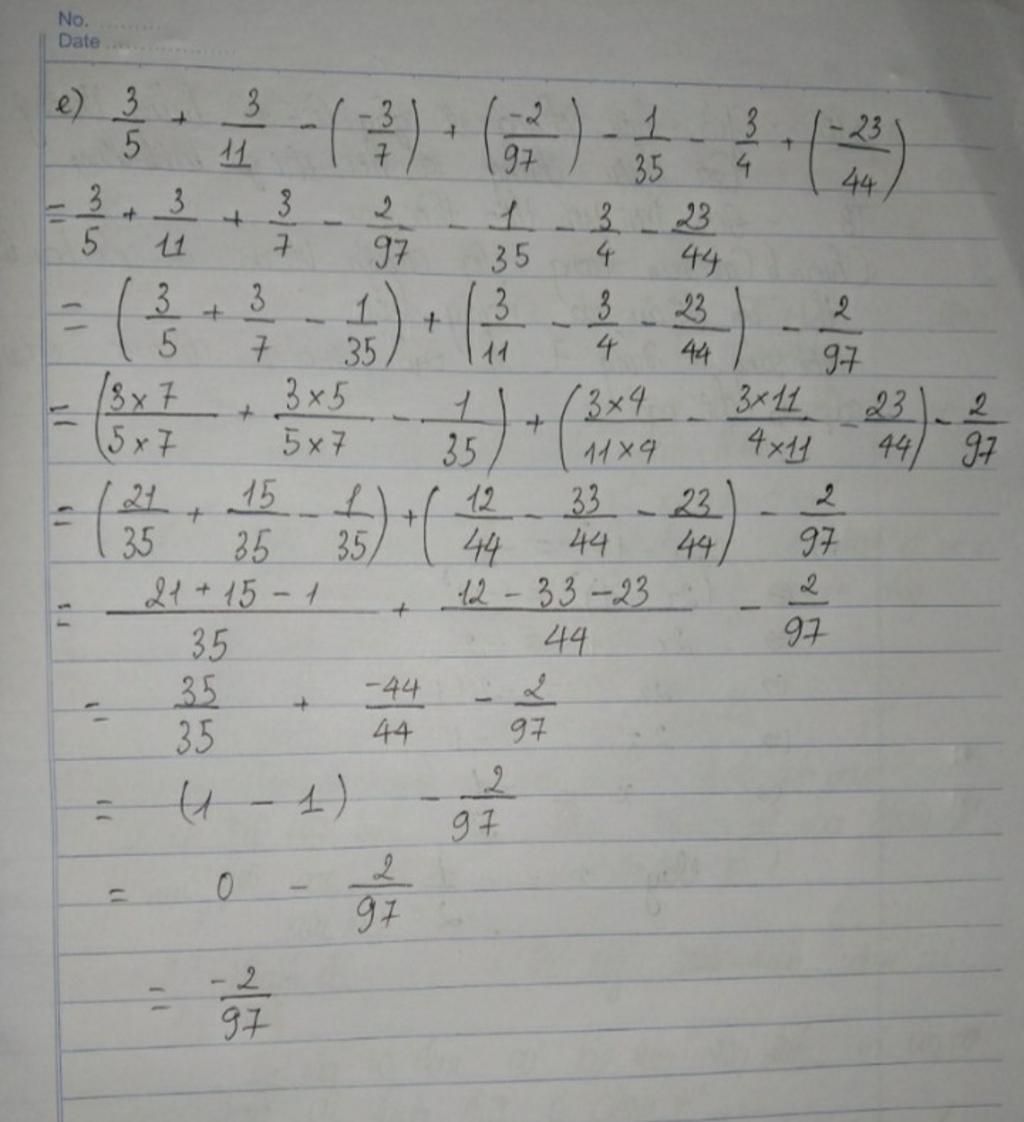 No. ..........
Date ....................
e) 3/5 + 3/11 - (-3/7) + (-2/97) - 1/35 - 3/4 + (-23/44)
= 3/5 + 3/11 + 3/7 - 2/97 - 1/35 - 3/4 - 23/44
= (3/5 + 3/7 - 1/35) + (3/11 - 3/4 - 23/44) - 2/97
= (3×7/5×7 + 3×5/5×7 - 1/35) + (3×4/11×4 - 3×11/4×11 - 23/44) - 2/97
= (21/35 + 15/35 - 1/35) + (12/44 - 33/44 - 23/44) - 2/97
= 21+15-1/35 + 12-33-23/44 - 2/97
= 35/35 + -44/44 - 2/97
= (1 - 1) - 2/97
= 0 - 2/97
= -2/97